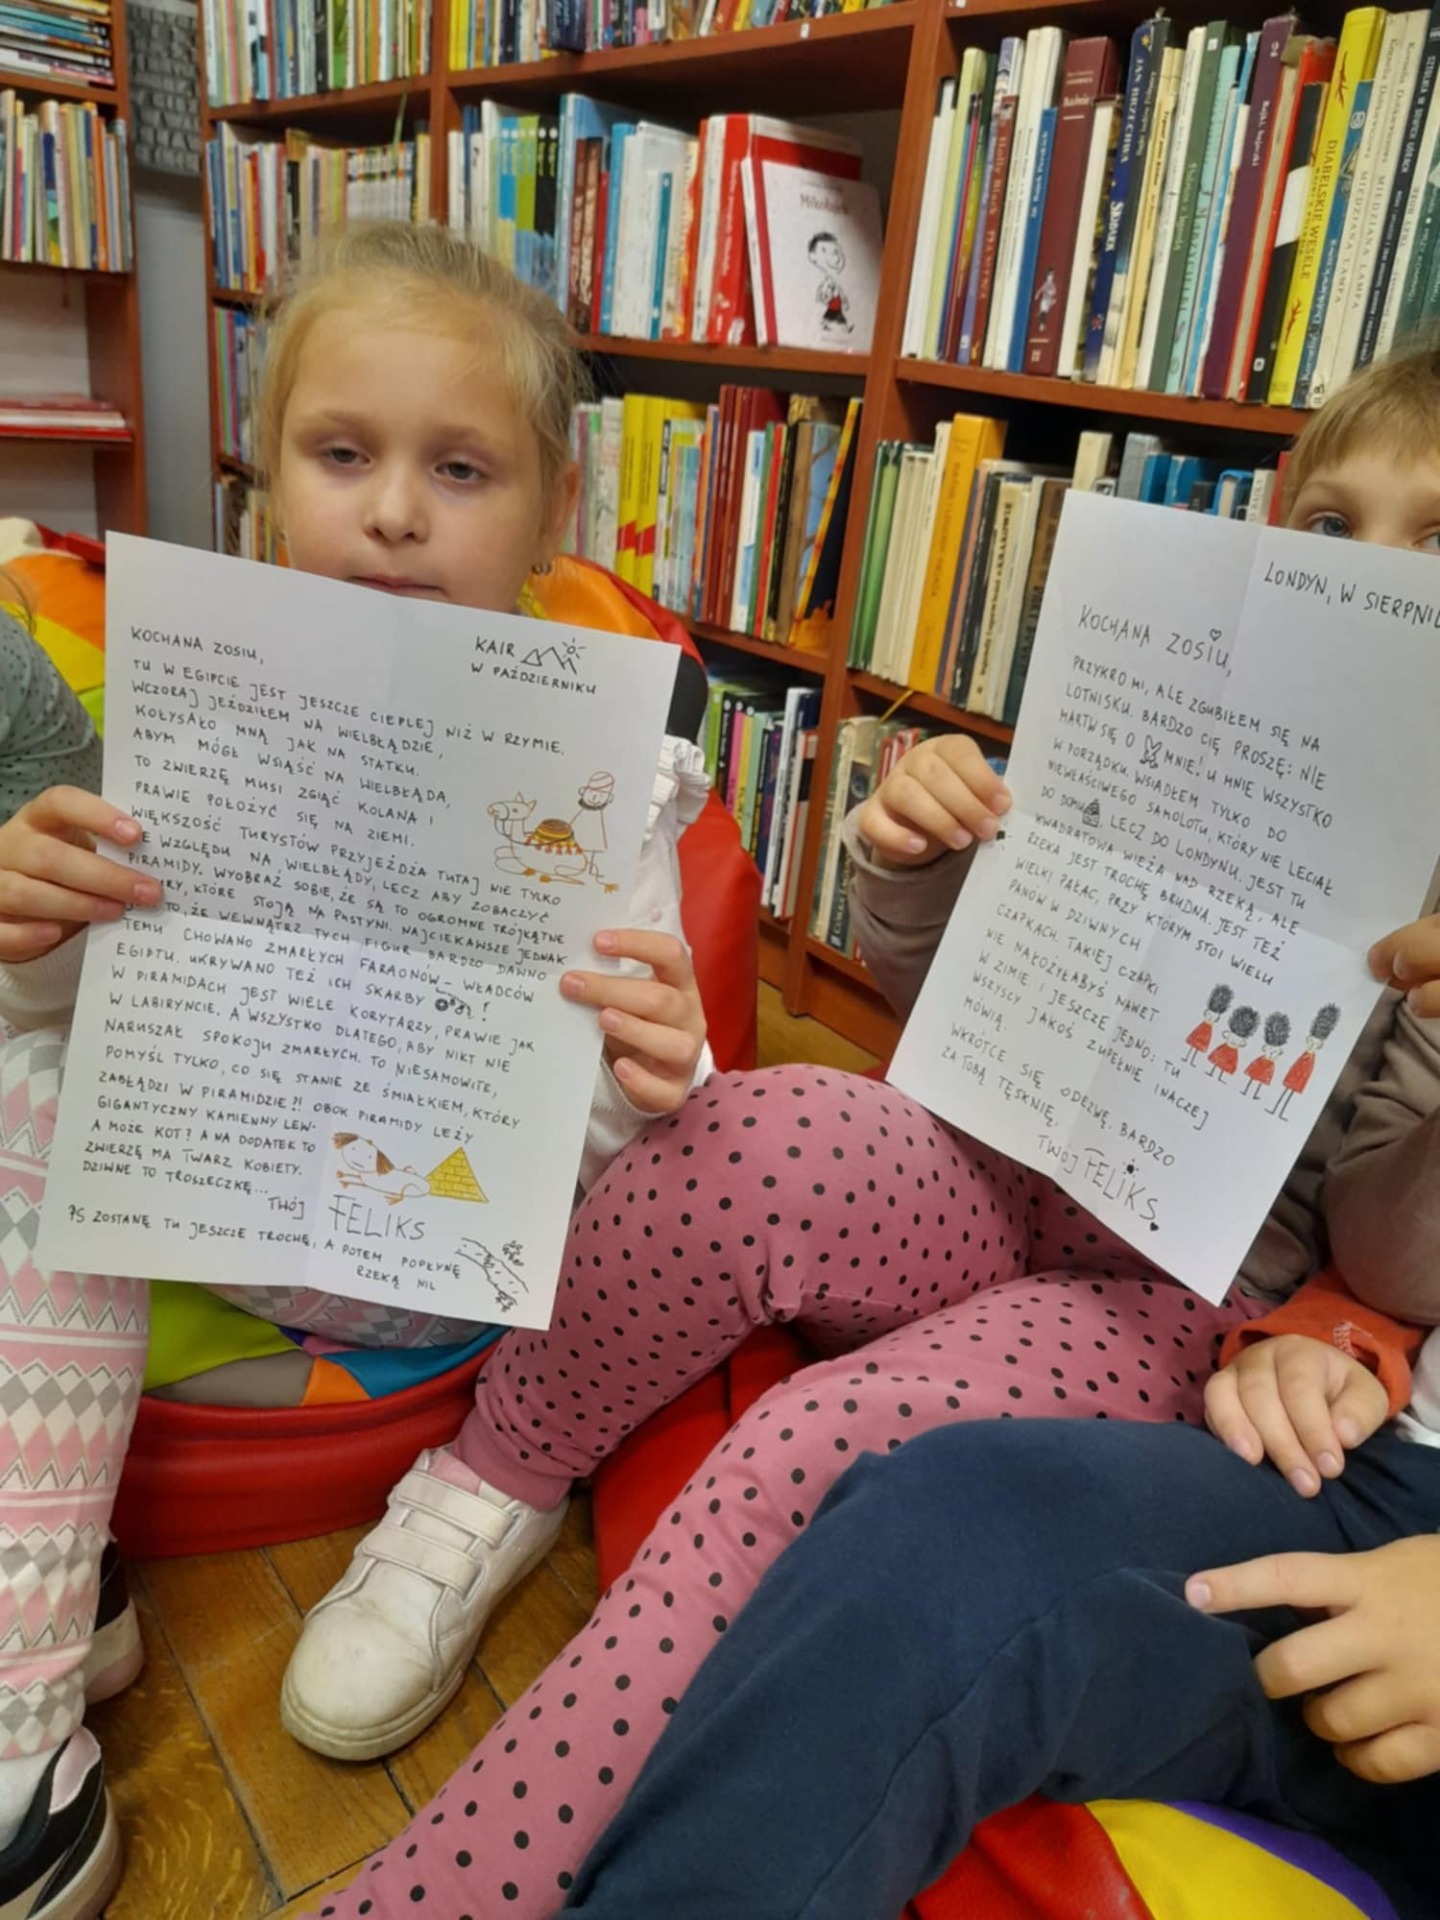 KOCHANA ZOSIU,
KAIR
W PAŹDZIERNIKU
TU W EGIPCIE JEST JESZCZE CIEPLEJ NIŻ W RZYMIE.
WCZORAJ JEŹDZIŁEM NA WIELBŁĄDZIE,
KOŁYSAŁO MNĄ JAK NA STATKU.
ABYM MÓGŁ WSIĄŚĆ NA WIELBŁĄDA,
TO ZWIERZĘ MUSI ZGIĄĆ KOLANA I
PRAWIE POŁOŻYĆ SIĘ NA ZIEMI.
WIĘKSZOŚĆ TURYSTÓW PRZYJEŻDŻA TUTAJ NIE TYLKO
ZE WZGLĘDU NA WIELBŁĄDY, LECZ ABY ZOBACZYĆ
PIRAMIDY. WYOBRAŹ SOBIE, ŻE SĄ TO OGROMNE TRÓJKĄTNE
KTÓRE STOJĄ NA PUSTYNI. NAJCIEKAWSZE JEDNAK
TO, ŻE WEWNĄTRZ TYCH FIGUR BARDZO DAWNO
TEMU CHOWANO ZMARŁYCH FARAONÓW – WŁADCÓW
EGIPTU. UKRYWANO TEŻ ICH SKARBY !
W PIRAMIDACH JEST WIELE KORYTARZY, PRAWIE JAK
W LABIRYNCIE. A WSZYSTKO DLATEGO, ABY NIKT NIE
NARUSZAŁ SPOKOJU ZMARŁYCH. TO NIESAMOWITE,
POMYŚL TYLKO, CO SIĘ STANIE ZE ŚMIAŁKIEM, KTÓRY
ZABŁĄDZI W PIRAMIDZIE?! OBOK PIRAMIDY LEŻY
GIGANTYCZNY KAMIENNY LEW.
A MOŻE KOT? A NA DODATEK TO
ZWIERZĘ MA TWARZ KOBIETY.
DZIWNE TO TROSZECZKĘ...
TWÓJ FELIKS
PS ZOSTANĘ TU JESZCZE TROCHĘ, A POTEM POPŁYNĘ
RZEKĄ NIL
LONDYN, W SIERPNIU
KOCHANA ZOSIU,
PRZYKRO MI, ALE ZGUBIŁEM SIĘ NA
LOTNISKU. BARDZO CIĘ PROSZĘ: NIE
MARTW SIĘ O MNIE! U MNIE WSZYSTKO
W PORZĄDKU. WSIADŁEM TYLKO DO
NIEWŁAŚCIWEGO SAMOLOTU, KTÓRY NIE LECIAŁ
DO DOMU, LECZ DO LONDYNU. JEST TU
KWADRATOWA WIEŻA NAD RZEKĄ, ALE
RZEKA JEST TROCHĘ BRUDNA. JEST TEŻ
WIELKI PAŁAC, PRZY KTÓRYM STOI WIELU
PANÓW W DZIWNYCH
CZAPKACH. TAKIEJ CZAPKI
NIE NAŁOŻYŁABYŚ NAWET
W ZIMIE. I JESZCZE JEDNO: TU
WSZYSCY JAKOŚ ZUPEŁNIE INACZEJ
MÓWIĄ.
WKRÓTCE SIĘ ODEZWĘ. BARDZO
ZA TOBĄ TĘSKNIĘ,
TWÓJ FELIKS
Mikołajek
JAN BRZECHWA
DIABELSKIE WESELE
MIEDZIANA LAMPA
MIEDZIANA LAMPA